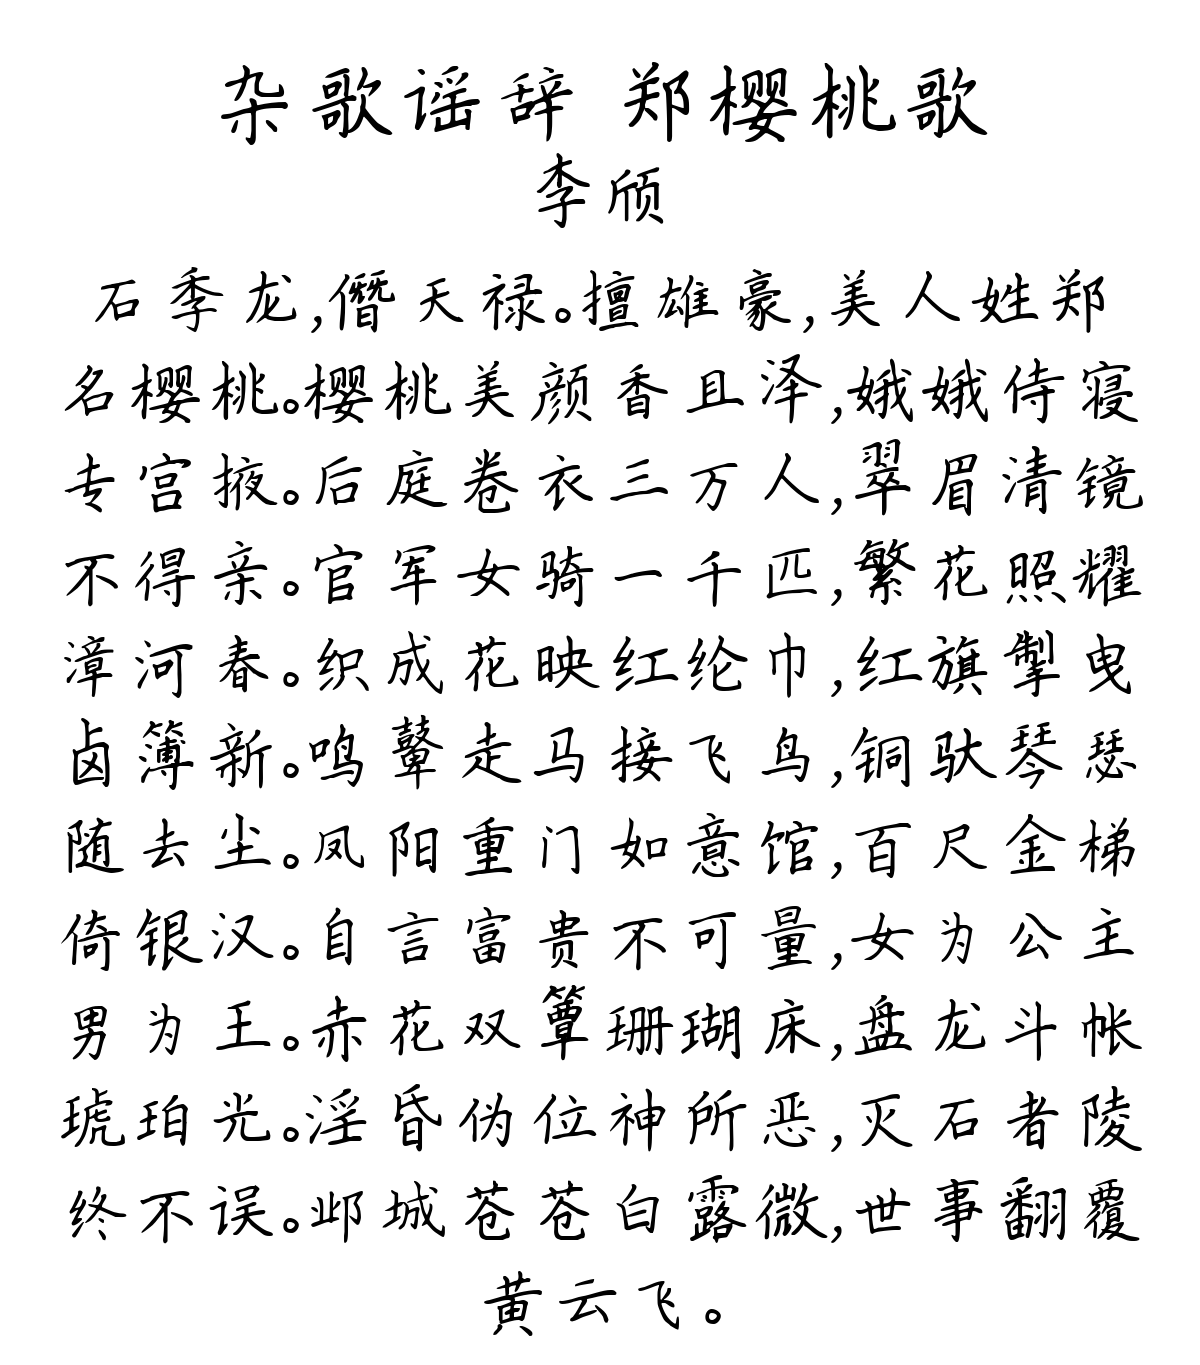 杂歌谣辞 郑樱桃歌
李颀
石季龙,僭天禄。擅雄豪,美人姓郑
名樱桃。樱桃美颜香且泽,娥娥侍寝
专宫掖。后庭卷衣三万人,翠眉清镜
不得亲。官军女骑一千匹,繁花照耀
漳河春。织成花映红纶巾,红旗掣曳
卤簿新。鸣鼙走马接飞鸟,铜䭾琴瑟
随去尘。凤阳重门如意馆,百尺金梯
倚银汉。自言富贵不可量,女为公主
男为王。赤花双簟珊瑚床,盘龙斗帐
琥珀光。淫昏伪位神所恶,灭石者陵
终不误。邺城苍苍白露微,世事翻覆
黄云飞。